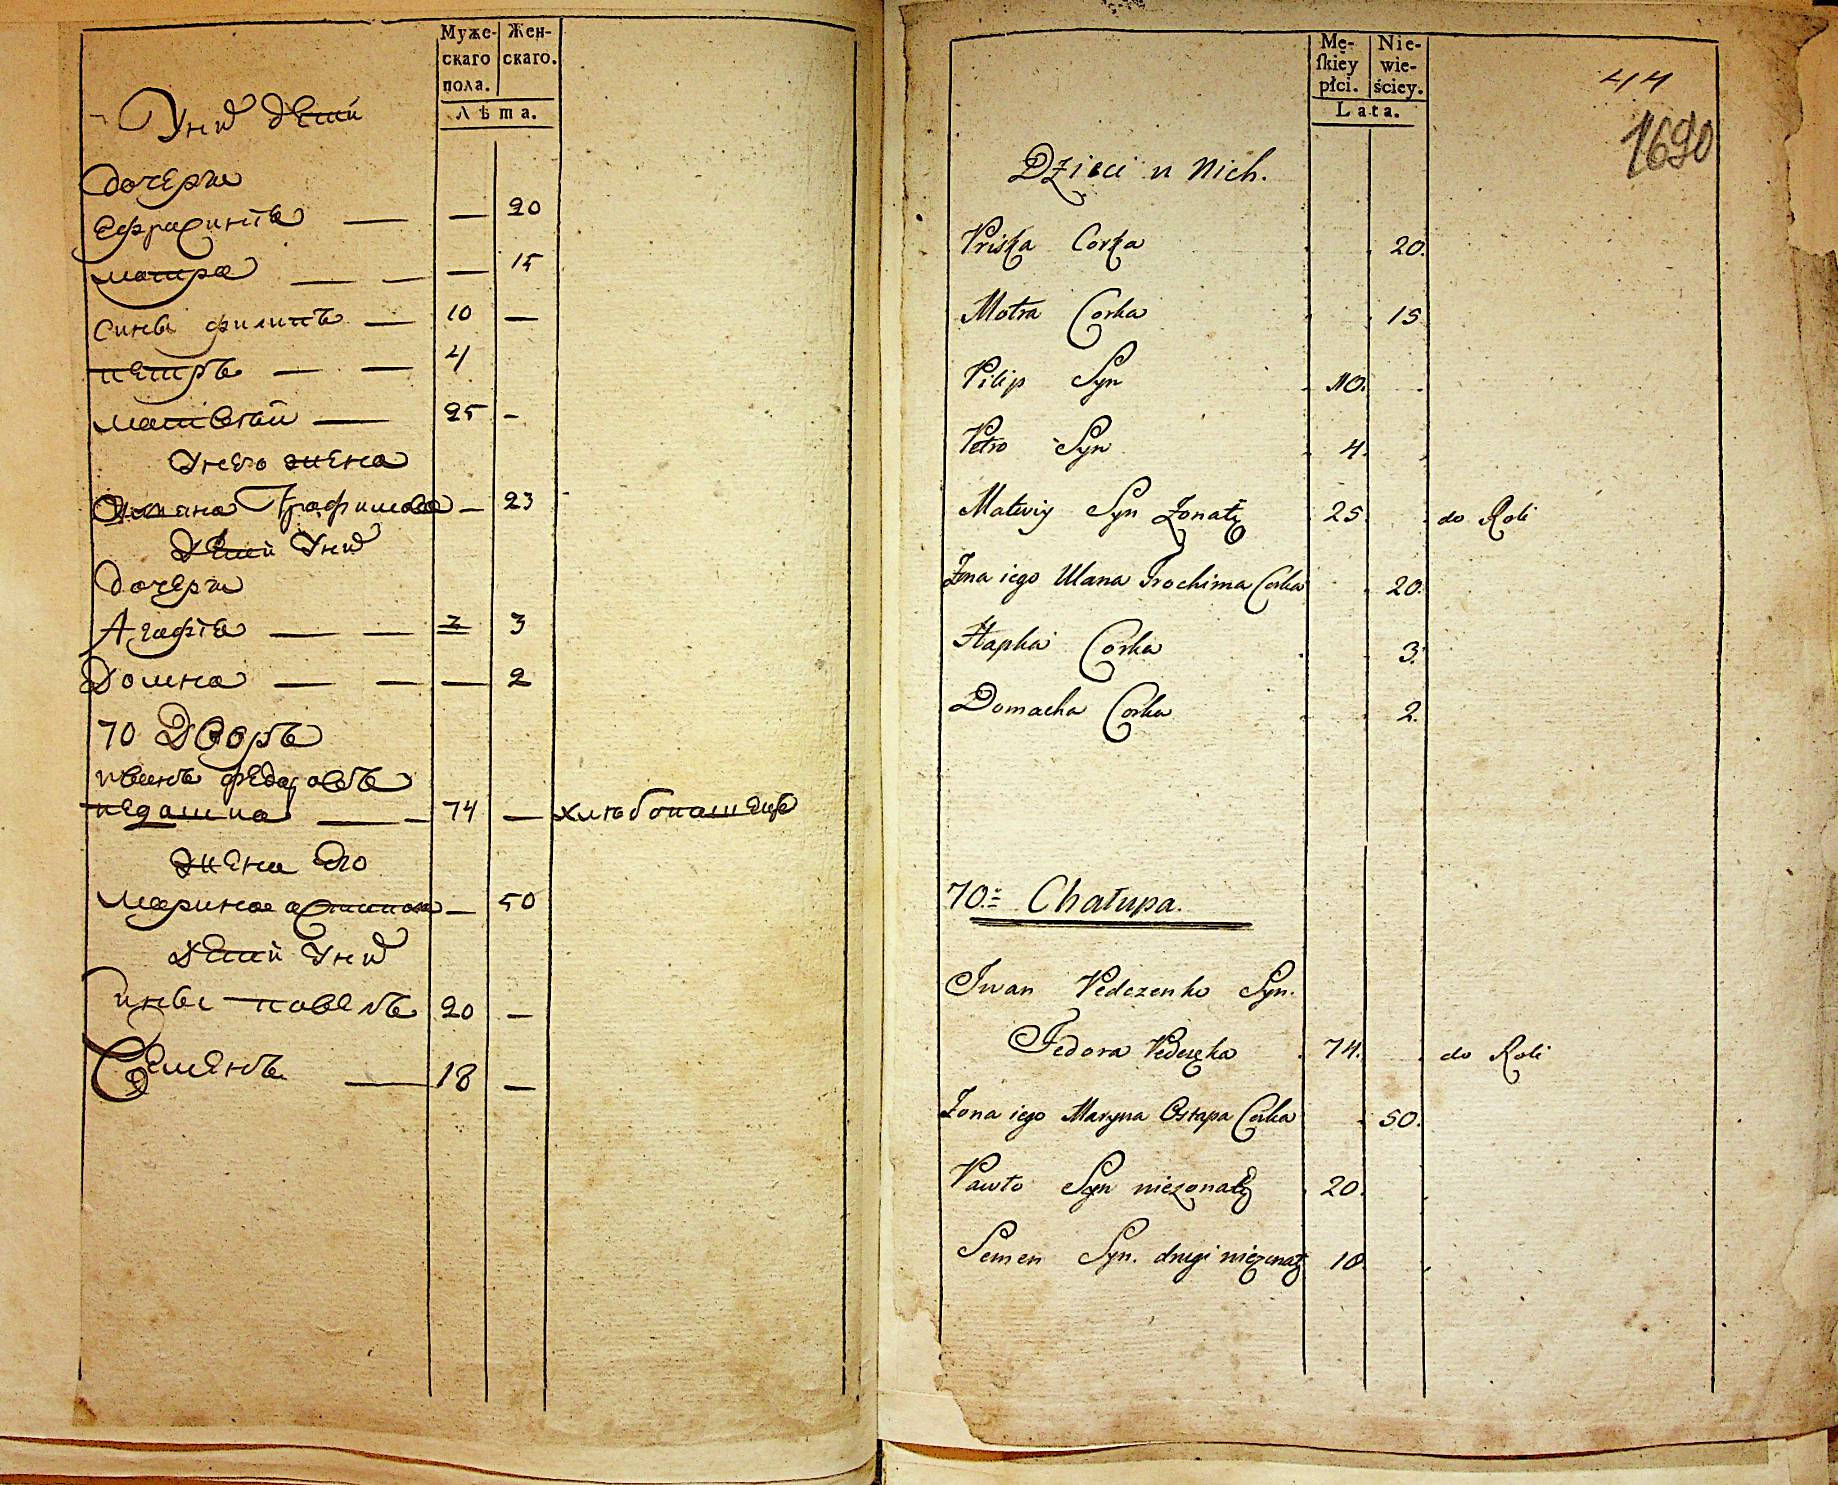 Муже-
скаго
пола.
Жен-
скаго.
Лѣта.
У них дети
дочери
Ефросиніѣ — — 20
мотра — — — 15
синъ филипъ — 10 —
петръ — — 4
матвѣй — 25 —
У него жена
Трофимова — 23
дети У них
дочери
Агафіѣ — — 2 3
Домна — — — 2
70 Дворъ
иванъ федоровъ
педашка — — 74 — хлѣбопашецъ
жена Его
Марина — 50
дети У них
Синъ павелъ 20 —
Семенъ — 18 —
Mę-
skiey
płci.
Nie-
wie-
ściey.
Lata.
44
1690
Dzieci u Nich.
Priska Corka 20.
Motra Corka 15
Pilip Syn 10.
Petro Syn 4.
Matwiy Syn Zonaty 25. do Roli
Zona iego Ulana Trochima Corka 20.
Hapka Corka 3.
Domacha Corka 2.
70. Chałupa.
Iwan Pedczenko Syn.
Fedora 74. do Roli
Zona iego Maryna Ostapa Corka 50.
Pawło Syn niezonaty 20.
Semen Syn. drugi niezonaty 18